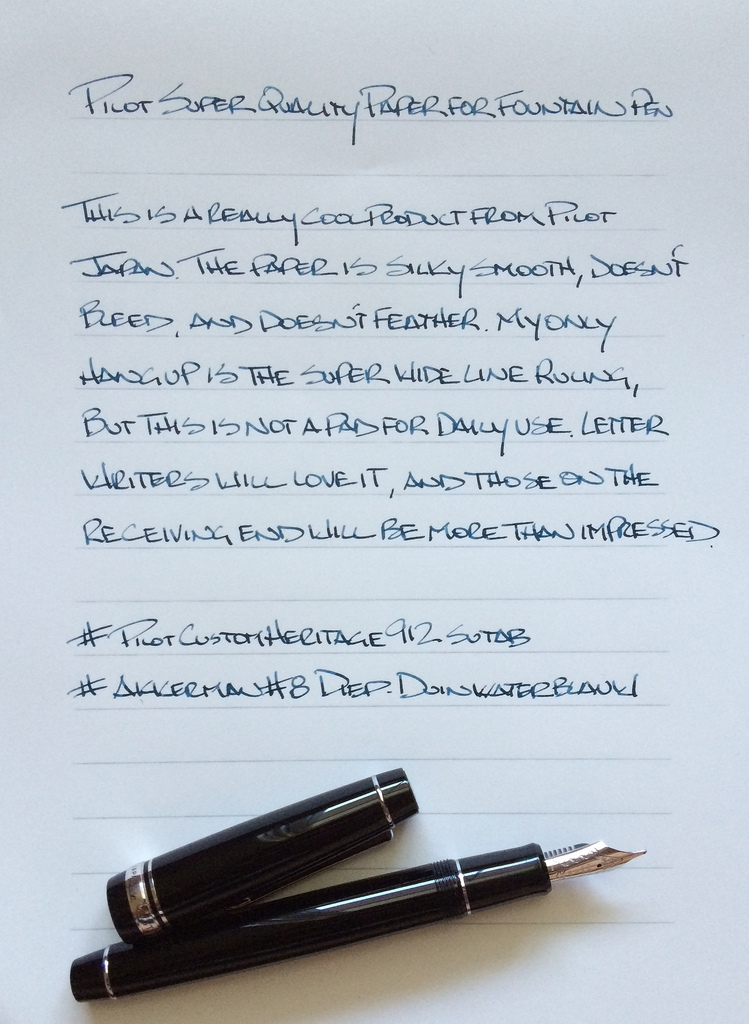 PILOT SUPER QUALITY PAPER FOR FOUNTAIN PEN
THIS IS A REALLY COOL PRODUCT FROM PILOT
JAPAN. THE PAPER IS SILKY SMOOTH, DOESN'T
BLEED, AND DOESN'T FEATHER. MY ONLY
HANGUP IS THE SUPER WIDE LINE RULING,
BUT THIS IS NOT A PAD FOR DAILY USE. LETTER
WRITERS WILL LOVE IT, AND THOSE ON THE
RECEIVING END WILL BE MORE THAN IMPRESSED.
# PILOT CUSTOM HERITAGE 912 SUTAB
# AKKERMAN #8 DIEP-DUINWATERBLAUW